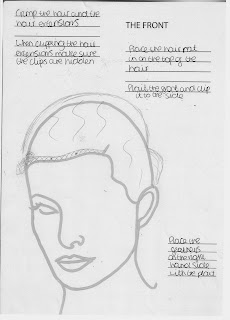 Crimp the hair and the
hair extensions
When clipping the hair
extensions make sure
the clips are hidden
THE FRONT
Place the hair pad
on the top of the
hair
Plait the front and clip
it to the side
Place the
on the right
hand side
with the plait